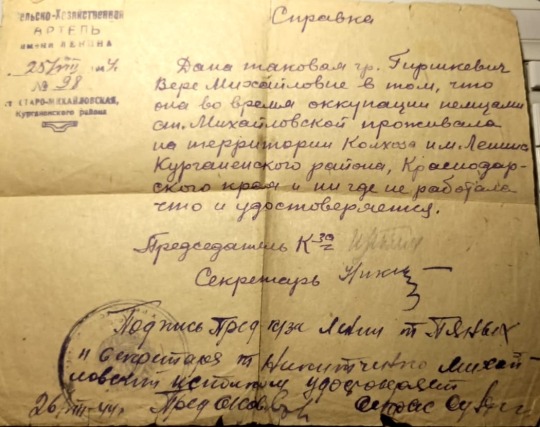 Справка
ЕЛЬСКО-ХОЗЯЙСТВЕННАЯ
АРТЕЛЬ
ИМЕНИ ЛЕНИНА
25/VIII
№ 98
СТ СТАРО-МИХАЙЛОВСКАЯ,
Курганенского района
Дана таковая гр. Гиршкевич
Вере Михайловне в том, что
она во время оккупации немцами
ст. Михайловской проживала
на территории Колхоза им. Ленина
Курганенского района, Краснодар-
ского края и ни где не работала
что и удостоверяется.
Председатель К-за
Секретарь
Подпись Пред к/за Ленин т
и Секретаря т Никитченко Михай-
ловский исполком удостоверяет
26/VIII-44г.